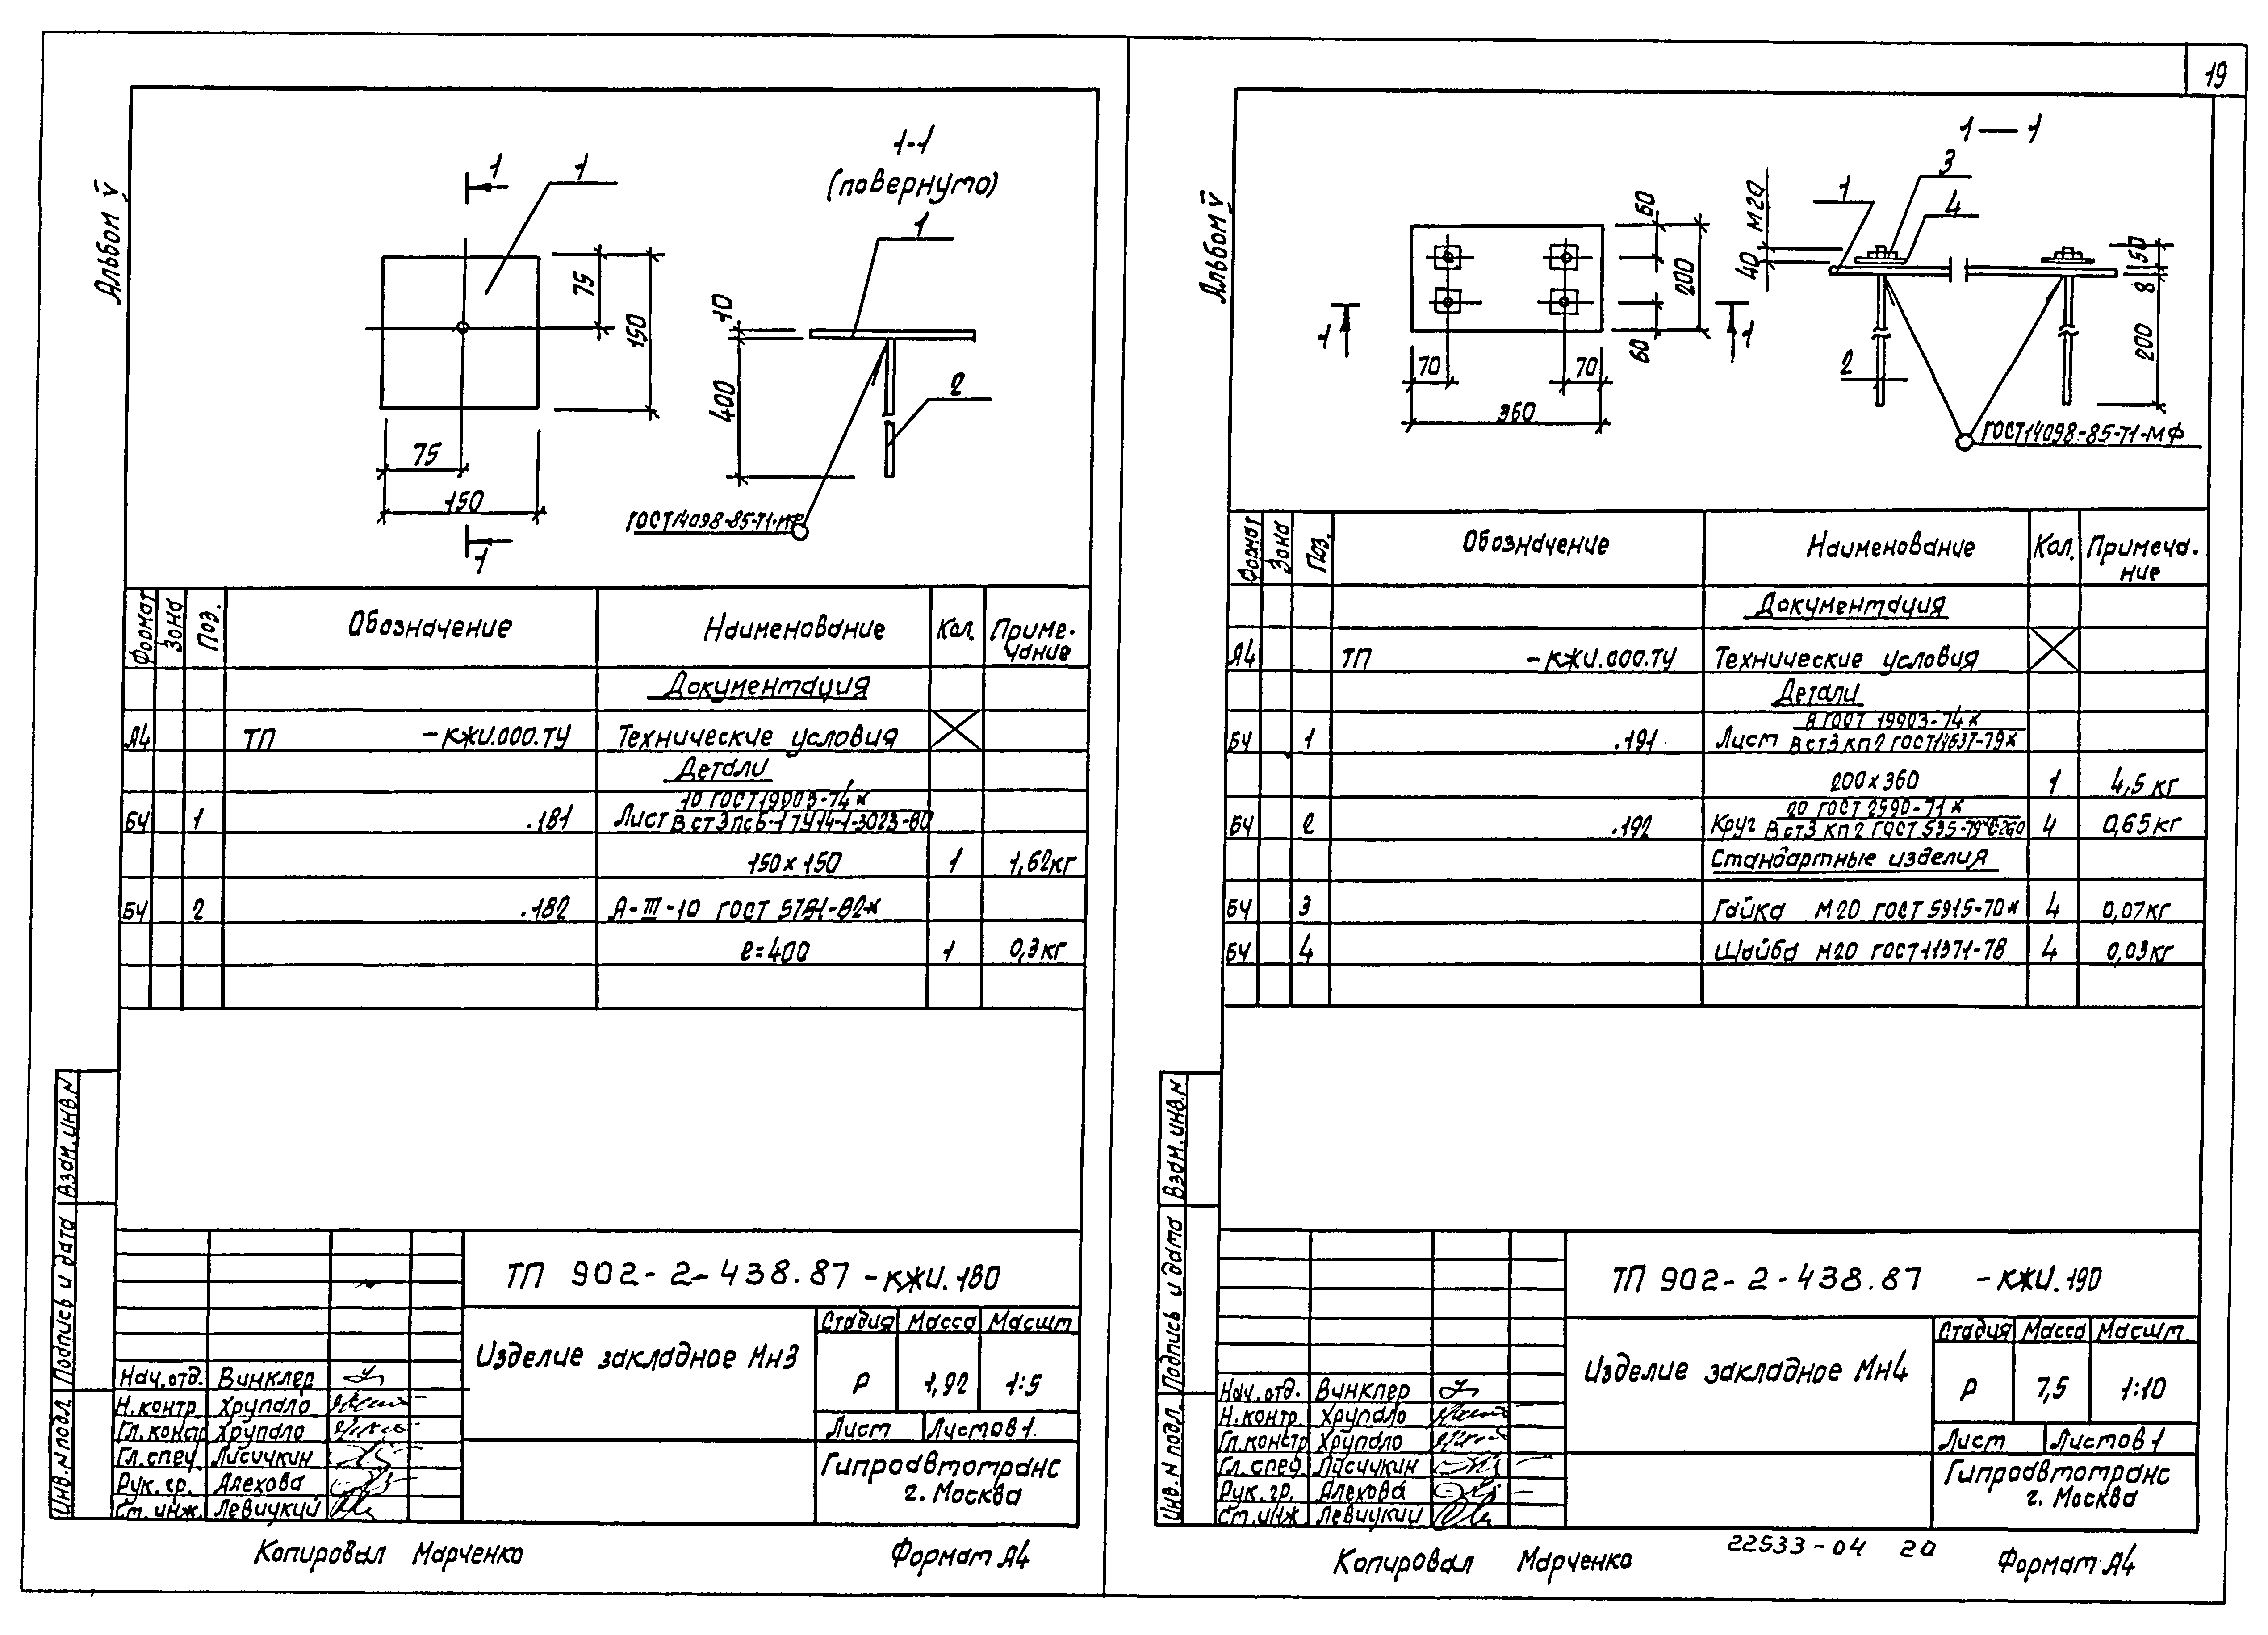 19
Альбом V
1
1
75
150
75
150
1
1-1
(повернуто)
1
10
400
2
ГОСТ14098-85-Т1-МФ
Формат Зона Поз. Обозначение Наименование Кол. Примечание
Документация
А4 ТП -КЖИ.000.ТУ Технические условия
Детали
10 ГОСТ19903-74*
БЧ 1 .181 Лист ВСт3пс6-1 ТУ14-1-3023-80
150х150 1 1,62кг
БЧ 2 .182 А-III-10 ГОСТ 5781-82*
ℓ=400 1 0,3кг
ТП 902-2-438.87-КЖИ.180
Изделие закладное МН3
Стадия Масса Масшт.
Р 1,92 1:5
Лист Листов 1
Гипроавтотранс
г. Москва
Нач.отд. Винклер
Н.контр Хрупало
Гл.констр Хрупало
Гл.спец. Лисичкин
Рук.гр. Алехова
Ст.инж. Левицкий
Инв.N подл. Подпись и дата Взам.инв.N
Копировал Марченко
Формат А4
Альбом V
1—1
60
200
60
1
1
70
70
360
М20
40
1
3
4
50
8
200
2
ГОСТ14098-85-Т1-МФ
Формат Зона Поз. Обозначение Наименование Кол. Примеча-
ние
Документация
А4 ТП -КЖИ.000.ТУ Технические условия
Детали
8 ГОСТ 19903-74*
БЧ 1 .191 Лист ВСт3кп2 ГОСТ14637-79*
200х360 1 4,5кг
20 ГОСТ 2590-71*
БЧ 2 .192 Круг ВСт3кп2 ГОСТ 535-79* 4 0,65кг
Стандартные изделия
БЧ 3 Гайка М20 ГОСТ 5915-70* 4 0,07кг
БЧ 4 Шайба М20 ГОСТ11371-78 4 0,03кг
ТП 902-2-438.87 -КЖИ.190
Изделие закладное МН4
Стадия Масса Масшт.
Р 7,5 1:10
Лист Листов 1
Гипроавтотранс
г. Москва
Нач.отд. Винклер
Н.контр. Хрупало
Гл.констр Хрупало
Гл.спец. Лисичкин
Рук.гр. Алехова
Ст.инж. Левицкий
Инв.N подл. Подпись и дата Взам.инв.N
Копировал Марченко
22533-04 20
Формат А4